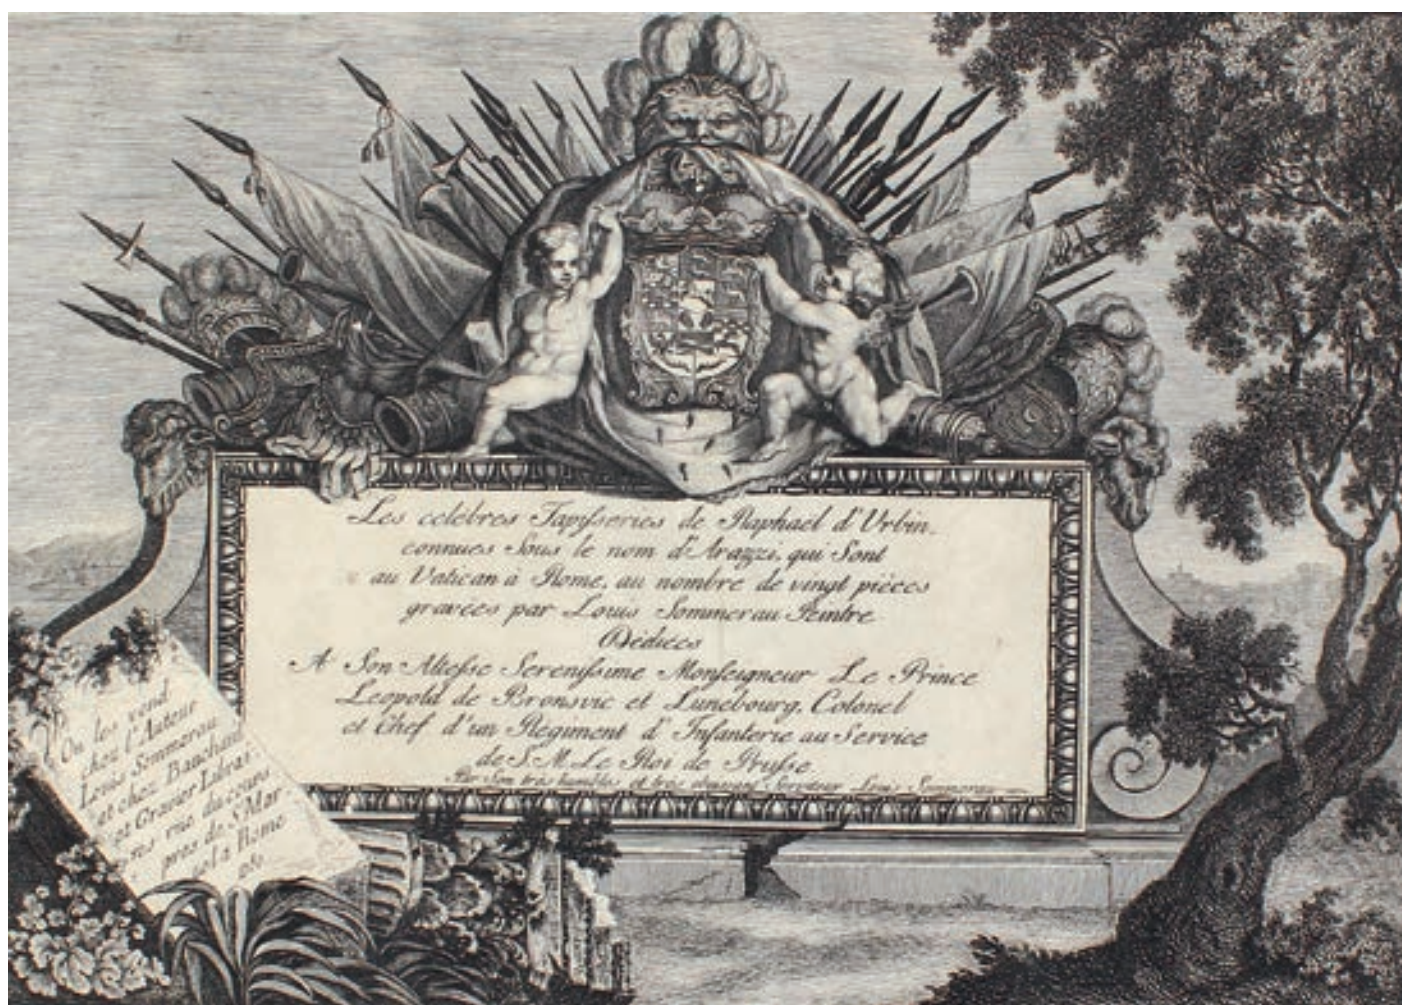 Les celebres Tapisseries de Raphael d'Urbin.
connues Sous le nom d'Arazzi, qui Sont
au Vatican à Rome, au nombre de vingt pièces
gravées par Louis Sommerau Peintre
Dédiées
A Son Altesse Serenissime Monseigneur Le Prince
Leopold de Bronsvic et Lunebourg, Colonel
et Chef d'un Régiment d'Infanterie au Service
de S. M. Le Roi de Prusse
Par Son très humble et très Serviteur Louis Sommerau
On les vend
chez l'Auteur
Louis Sommerau
et chez Bauchard
et Gravier Librai
res rue du cours
près de S. Mar
cel a Rome